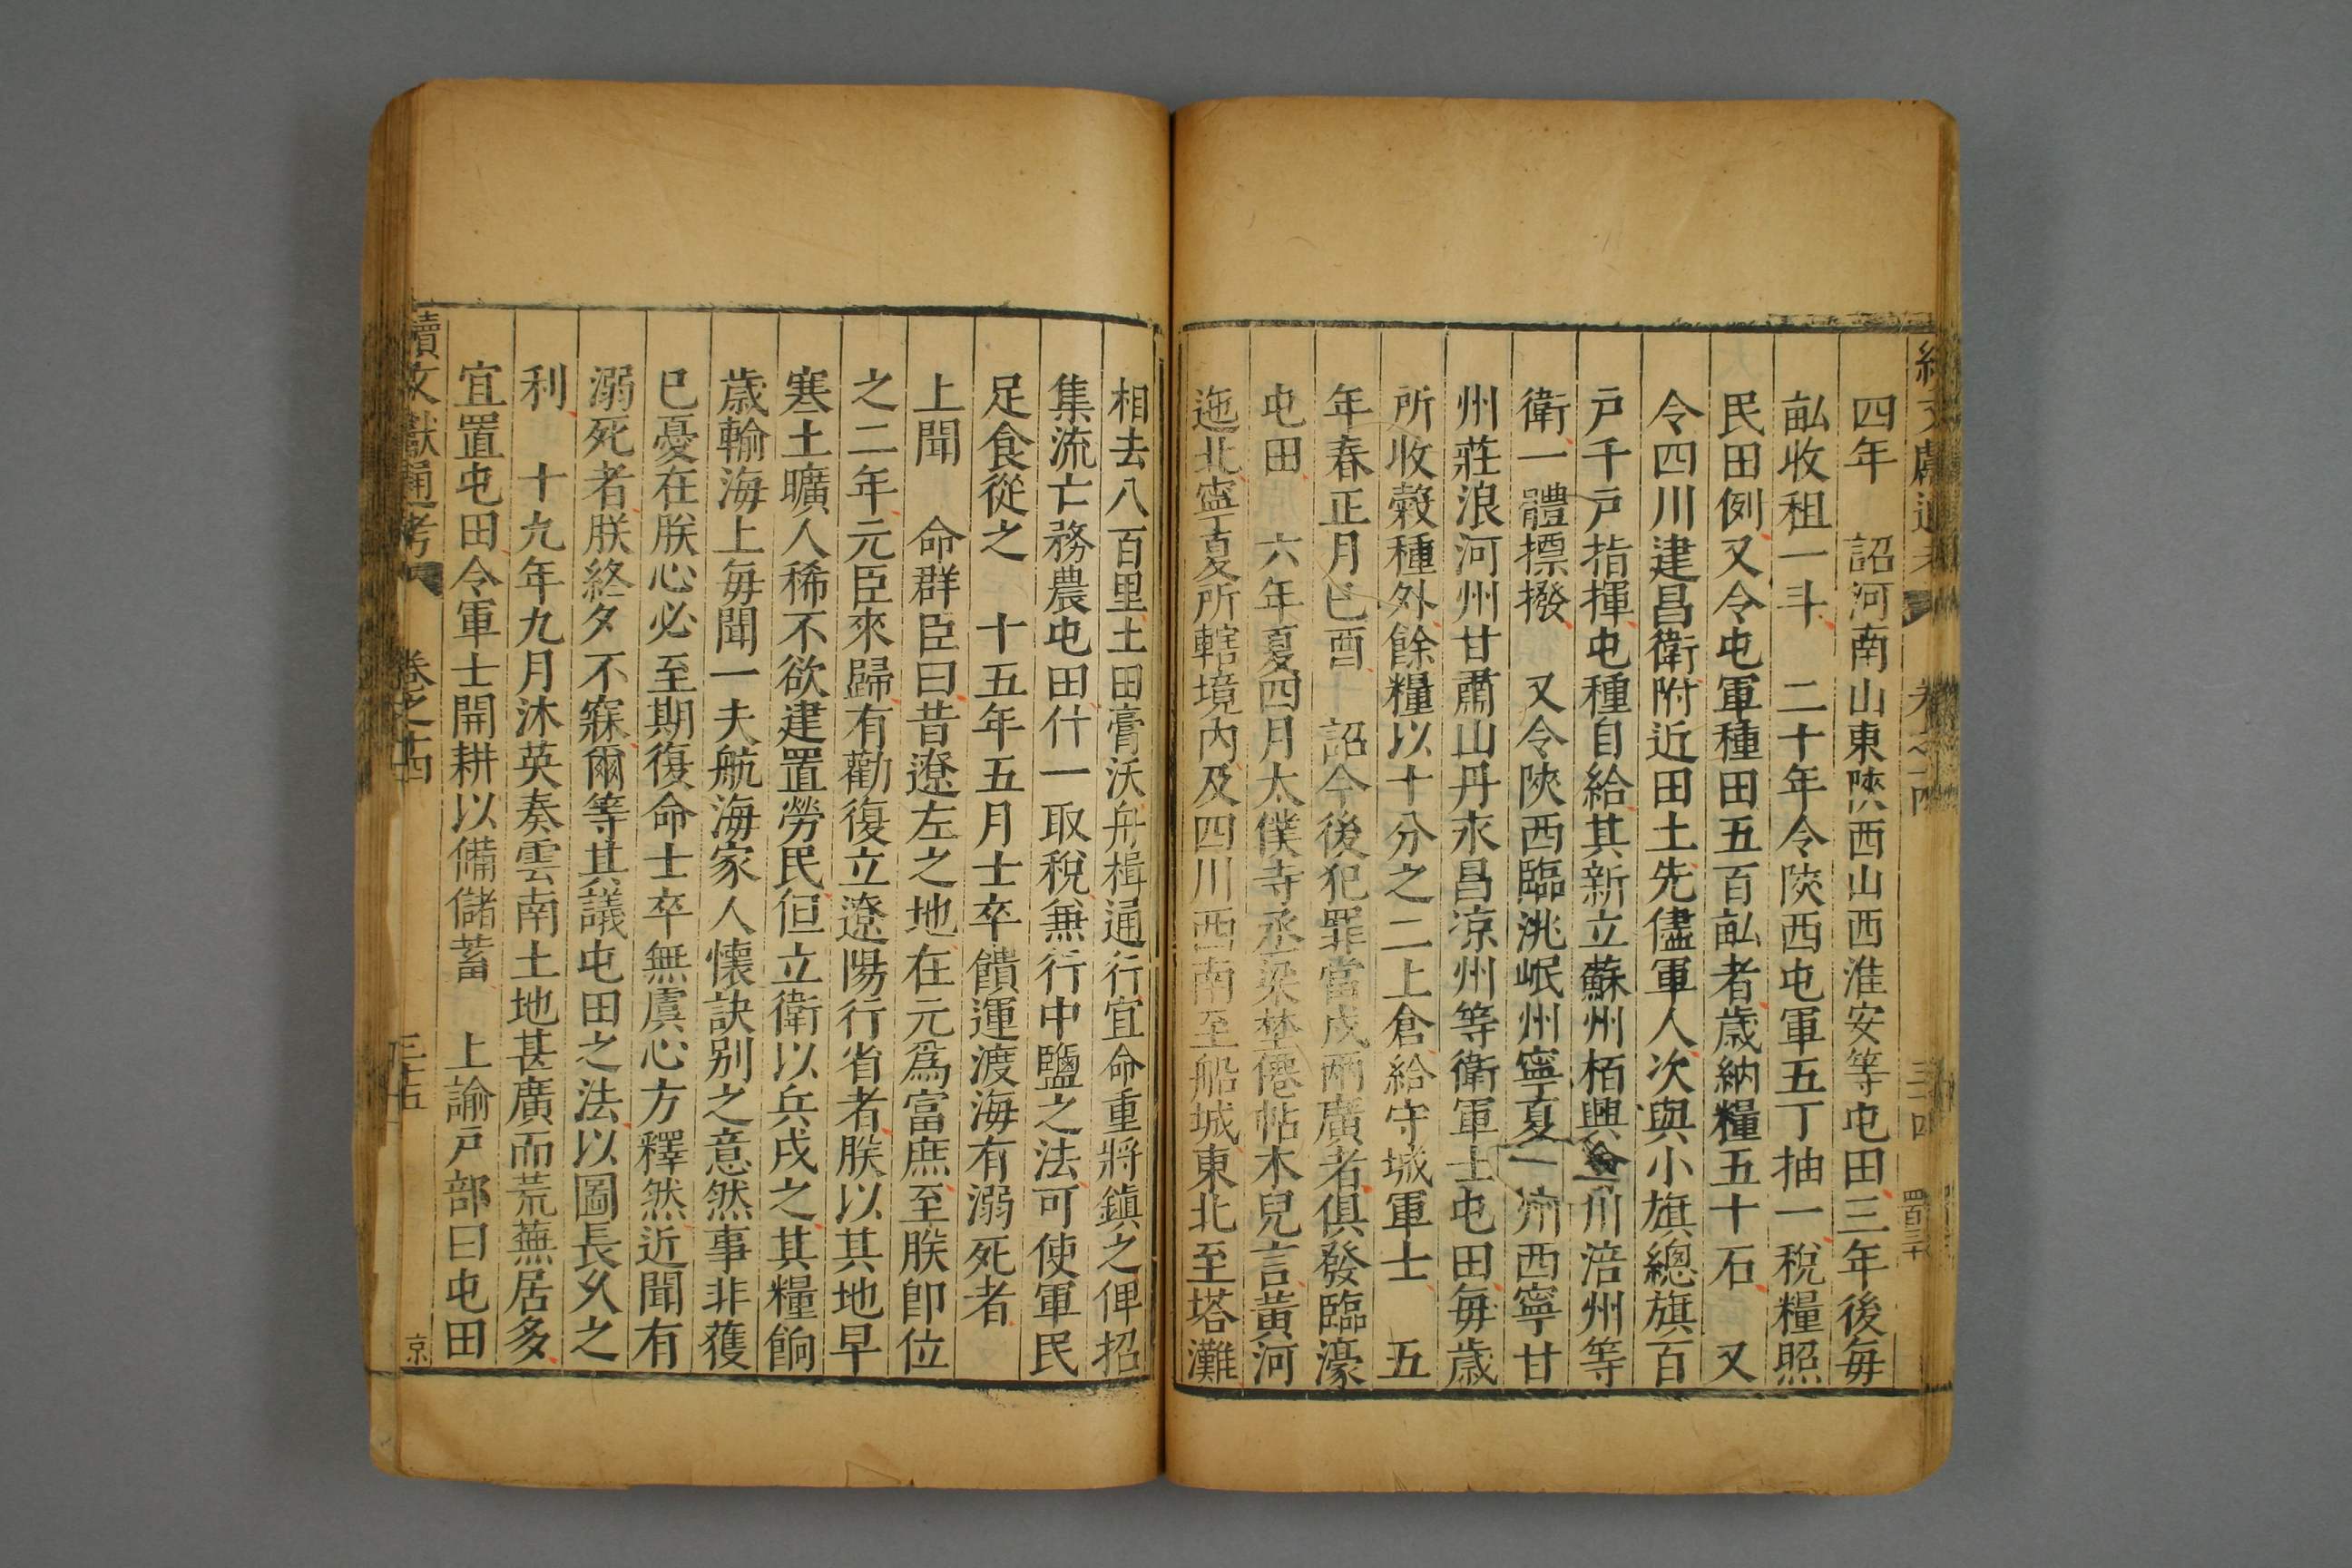 四年 詔河南山東陝西山西淮安等屯田三年後每
畝收租一斗 二十年令陝西屯軍五丁抽一稅糧照
民田例又令屯軍種田五百畝者歲納糧五十石 又
令四川建昌衛附近田土先儘軍人次與小旗總旗百
戶千戶指揮屯種自給其新立蘇州栢興 川涪州等
衛一體摽撥 又令陝西臨洮岷州寧夏 西寧甘
州莊浪河州甘肅山丹永昌凉州等衛軍士屯田每歲
所收穀種外餘糧以十分之二上倉給守城軍士 五
年春正月巳酉 詔今後犯罪當戍兩廣者俱發臨濠
屯田 六年夏四月太僕寺丞梁埜僊帖木兒言黃河
迤北寧夏所轄境內及四川西南至船城東北至塔灘
相去八百里土田膏沃舟楫通行宜命重將鎮之俾招
集流亡務農屯田什一取稅兼行中鹽之法可使軍民
足食從之 十五年五月士卒饋運渡海有溺死者
上聞 命群臣曰昔遼左之地在元爲富庶至朕卽位
之二年元臣來歸有勸復立遼陽行省者朕以其地早
寒土曠人稀不欲建置勞民但立衛以兵戍之其糧餉
歲輸海上每聞一夫航海家人懷訣別之意然事非獲
已憂在朕心必至期復命士卒無虞心方釋然近聞有
溺死者朕終夕不寐爾等其議屯田之法以圖長久之
利 十九年九月沐英奏雲南土地甚廣而荒蕪居多
宜置屯田令軍士開耕以備儲蓄 上諭戶部曰屯田
續文獻通考 卷之十四 三十五 京